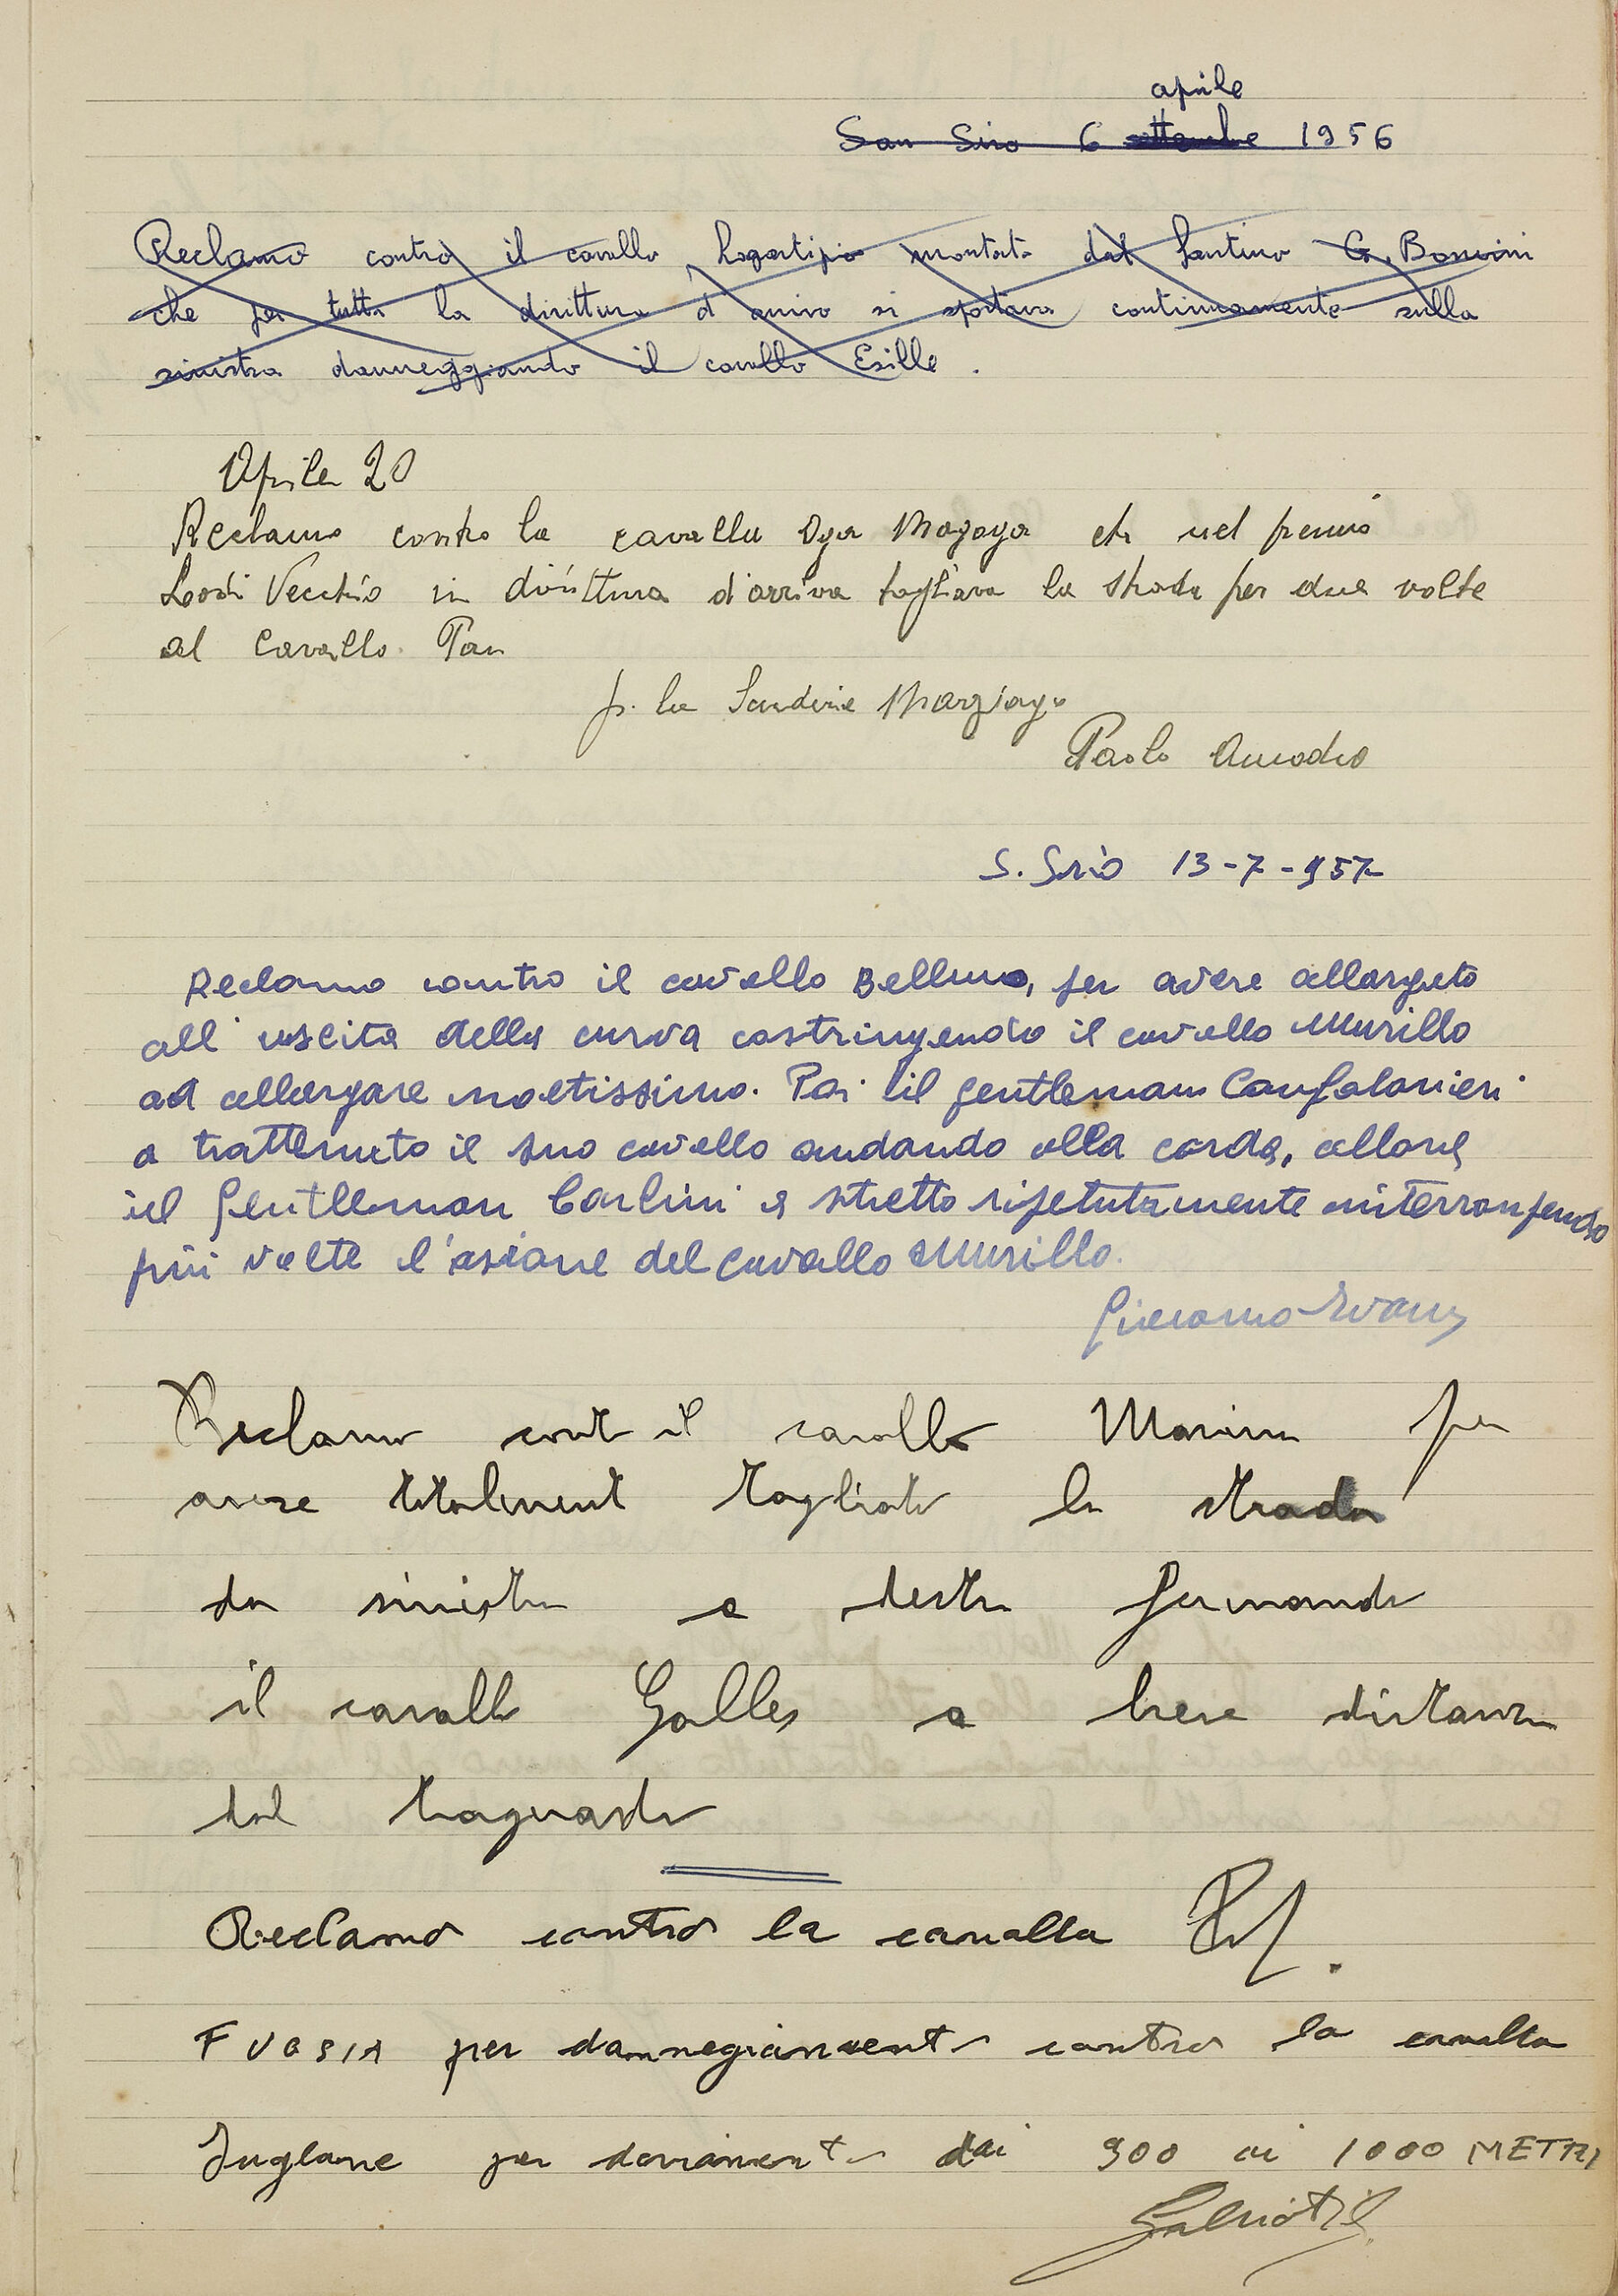 aprile
San Siro 6 settembre 1956
Reclamo contro il cavallo montato dal fantino G. Bonvini
che per tutta la dirittura d'arrivo si spostava continuamente sulla
sinistra danneggiando il cavallo Esille.
Aprile 20
Reclamo contro la cavalla Oga Magoga che nel premio
Lodi Vecchio in dirittura d'arrivo tagliava la strada per due volte
al cavallo Pan
p. la Scuderia
Paolo Amodeo
S. Siro 13-7-957
Reclamo contro il cavallo Belluno, per avere allargato
all'uscita della curva costringendo il cavallo Murillo
ad allargare moltissimo. Poi il gentleman Confalonieri
a trattenuto il suo cavallo andando alla corda, allora
il Gentlleman Carlini a stretto ripetutamente interrompendo
più volte l'azione del cavallo Murillo.
Giacomo
Reclamo contro il cavallo per
avere totalmente tagliato la strada
da sinistra a destra fermando
il cavallo Galles a breve distanza
dal traguardo
Reclamo contro la cavalla
FUCSIA per dannegiamento contro la cavalla
Juglane per deviamento dai 900 ai 1000 METRI